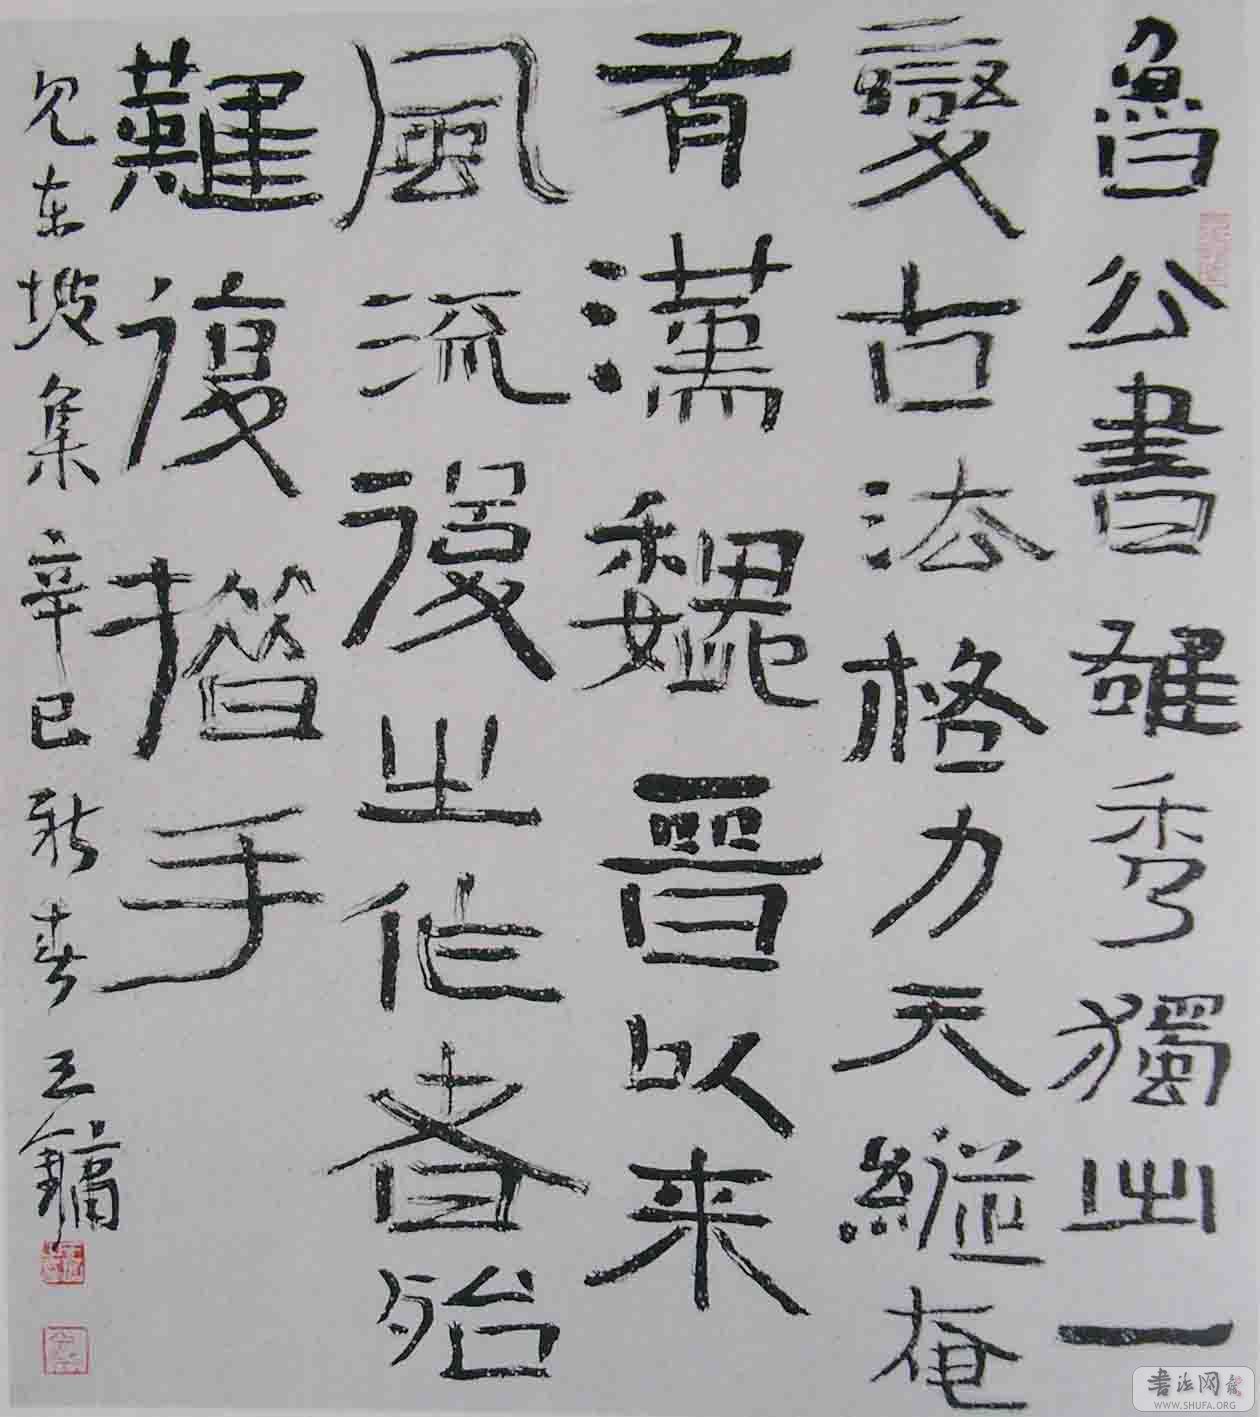 魯公書雄秀獨出一
變古法格力天縱奄
有漢魏晉以来
風流後之作者殆
難復措手
见东坡集辛巳新春王鏞
书法网
WWW.SHUFA.ORG